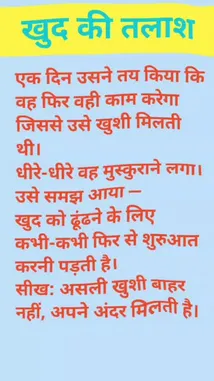 खुद की तलाश
एक दिन उसने तय किया कि
वह फिर वही काम करेगा
जिससे उसे खुशी मिलती
थी।
धीरे-धीरे वह मुस्कुराने लगा।
उसे समझ आया —
खुद को ढूंढने के लिए
कभी-कभी फिर से शुरुआत
करनी पड़ती है।
सीख: असली खुशी बाहर
नहीं, अपने अंदर मिलती है।